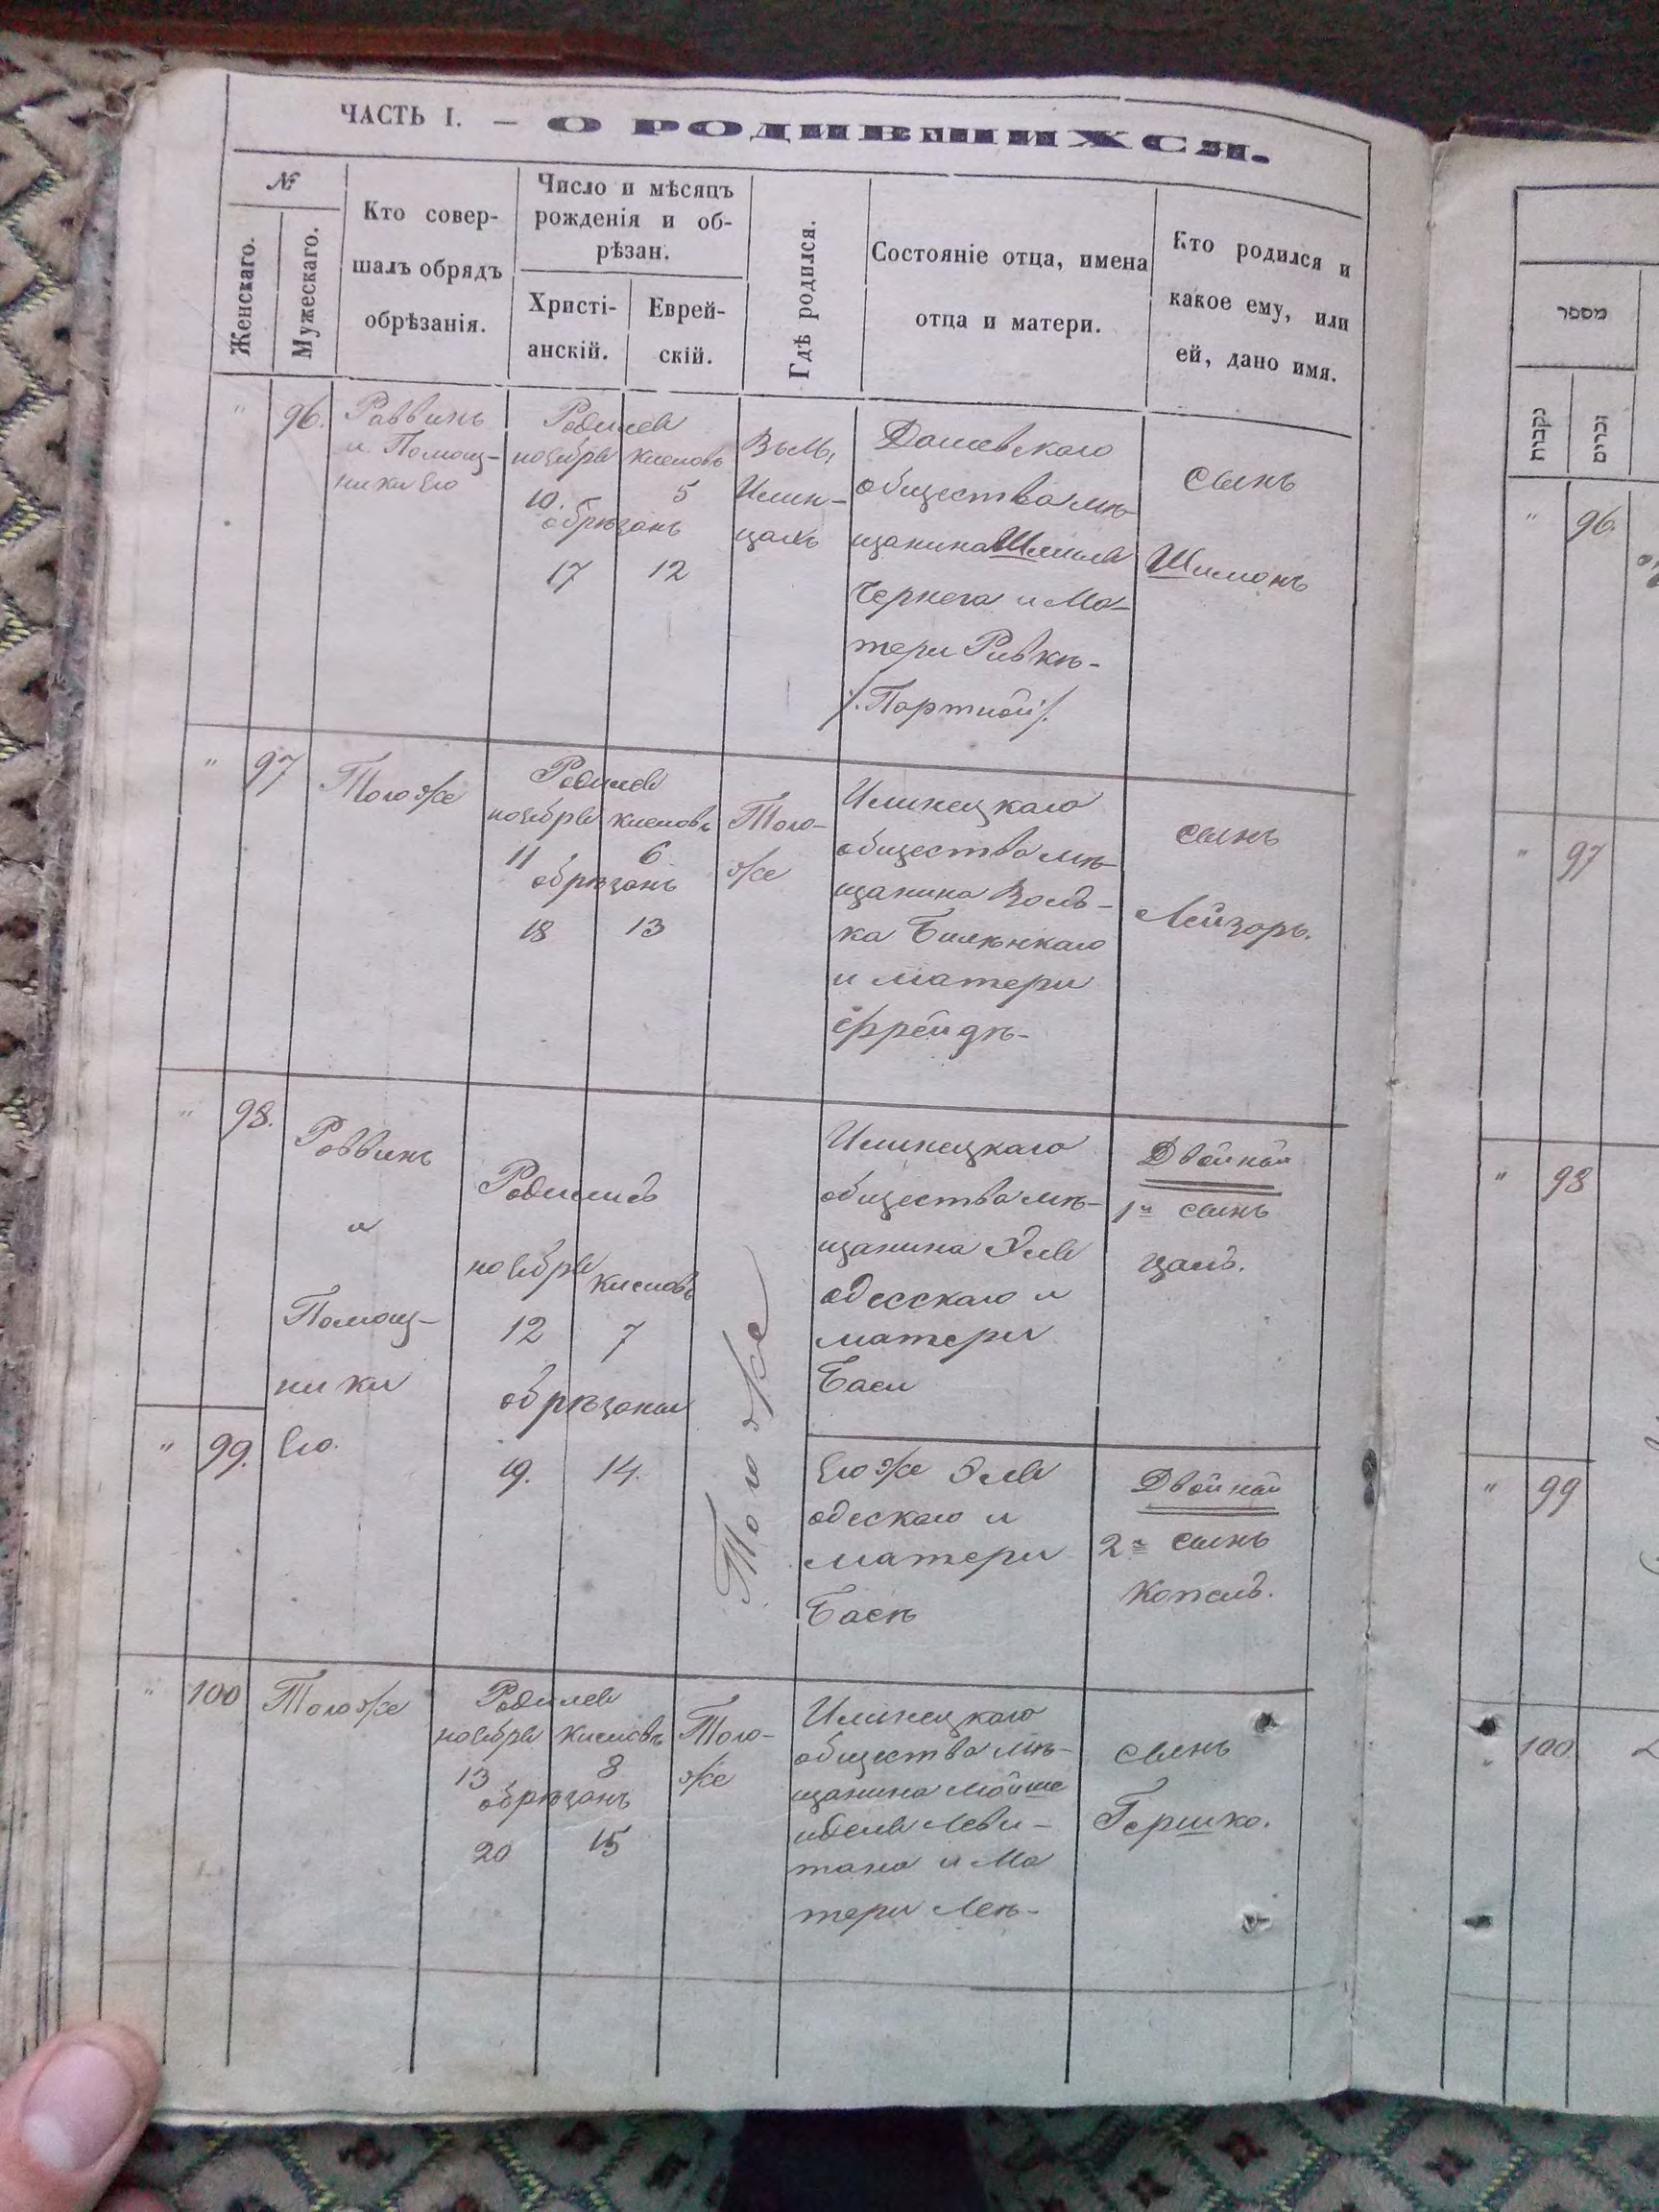 ЧАСТЬ I. — О РОДИВШИХСЯ.
№
Женскаго.
Мужескаго.
Кто совер-
шалъ обрядъ
обрѣзанія.
Число и мѣсяцъ
рожденія и об-
рѣзан.
Христі-
анскій.
Еврей-
скій.
Гдѣ родился.
Состояніе отца, имена
отца и матери.
Кто родился и
какое ему, или
ей, дано имя.
" 96.
Раввинъ
и Помощ-
ники Его
Родился
ноября кислевъ
10. 5
обрѣзанъ
17 12
Въ М,
Илин-
цахъ
Дашевскаго
общества мѣ-
щанина Шмиля
Чернега и Ма-
тери Ривкѣ-
/. Портной ./
сынъ
Шимонъ
" 97
Тогоже
Родился
ноября кислевъ
11 6
обрѣзанъ
18 13
Того-
же
Илинецкаго
общества мѣ-
щанина Воль-
ка Билѣнкаго
и матери
Фрейдѣ-
сынъ
Лейзоръ.
" 98.
Раввинъ
и
Помощ-
ники
Его.
Родились
ноября кислевъ
12 7
обрѣзаны
19. 14.
Тогоже
Илинецкаго
общества мѣ-
щанина Эля
одесскаго и
матери
Баси
Двойной
1й сынъ
цаль.
" 99.
Его же Эля
одескаго и
матери
Басѣ
Двойной
2й сынъ
Копель.
" 100
Тогоже
Родился
ноября кислевъ
13 8
обрѣзанъ
20 15
Того-
же
Илинецкаго
общества мѣ-
щанина Мойше
иделя Леви-
тана и Ма
тери Леѣ-
сынъ
Гершко.
מספר
נקבות
זכרים
" 96.
" 97
" 98
" 99
" 100